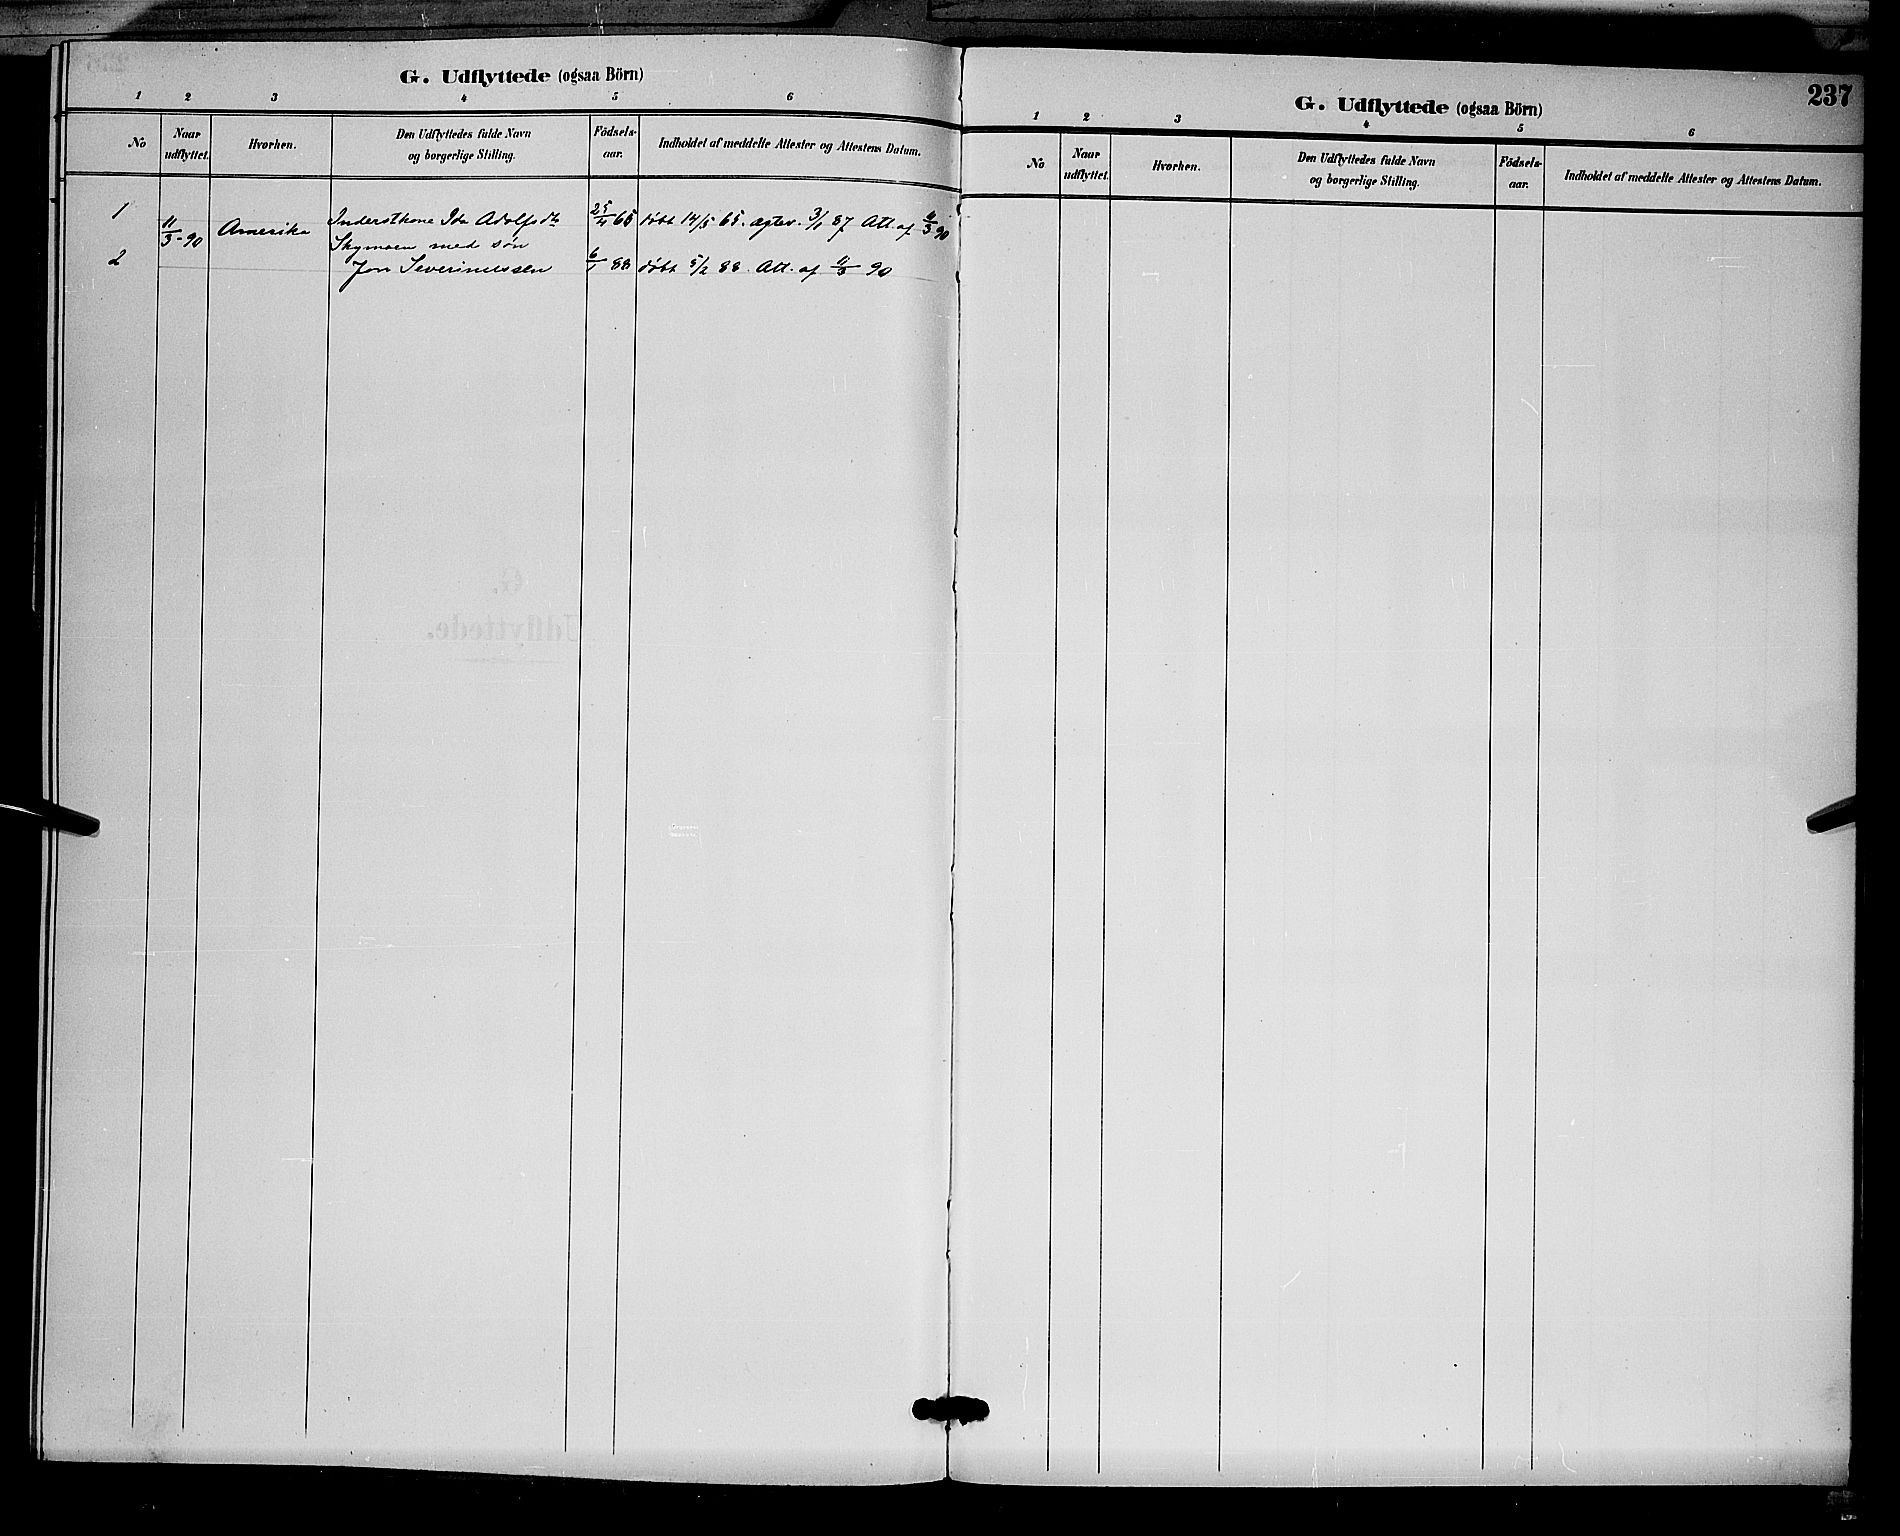 G. Udflyttede (ogsaa Börn)
1 2 3 4 5 6
No
Naar udflyttet.
Hvorhen.
Den Udflyttedes fulde Navn
og borgerlige Stilling.
Födsels-
aar.
Indholdet af meddelte Attester og Attestens Datum.
1 11/3-90 Amerika Inderstkone Ida Adolfsdtr 25/4 65 døbt 14/5 65. ægtev. 3/1 87 Att. af 11/3 90
Skymoen med søn
2 Jon Severinussen 6/1 88 døbt 5/2 88. Att. af 11/3 90
237
G. Udflyttede (ogsaa Börn)
1 2 3 4 5 6
No
Naar
udflyttet.
Hvorhen.
Den Udflyttedes fulde Navn
og borgerlige Stilling.
Födsels-
aar.
Indholdet af meddelte Attester og Attestens Datum.
G.
Udflyttede.